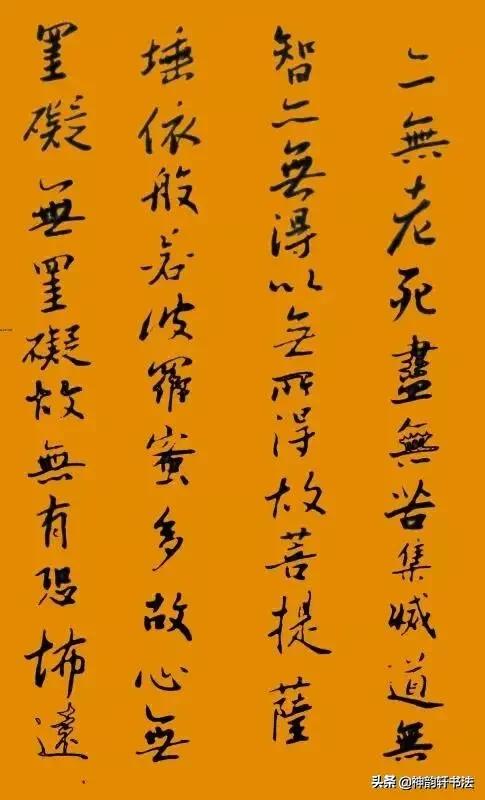 亦無老死盡無苦集滅道無
智亦無得以無所得故菩提薩
埵依般若波羅蜜多故心無
罣礙無罣礙故無有恐怖遠
头条 @神韵轩书法